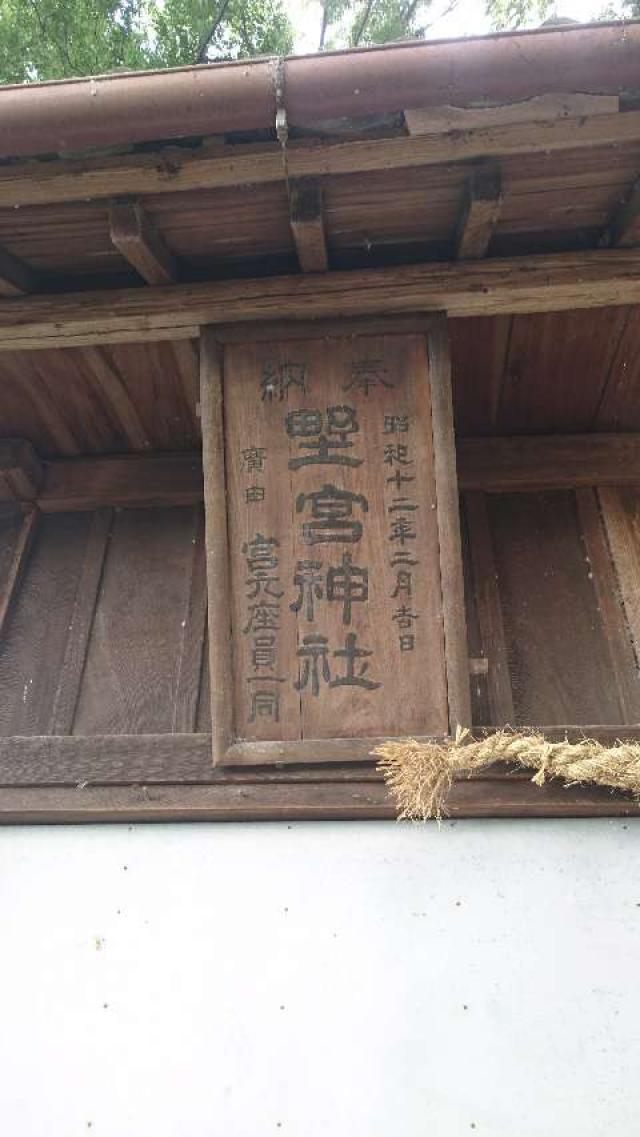 奉納
昭和十二年二月吉日
野宮神社
廣田
宮元座員一同